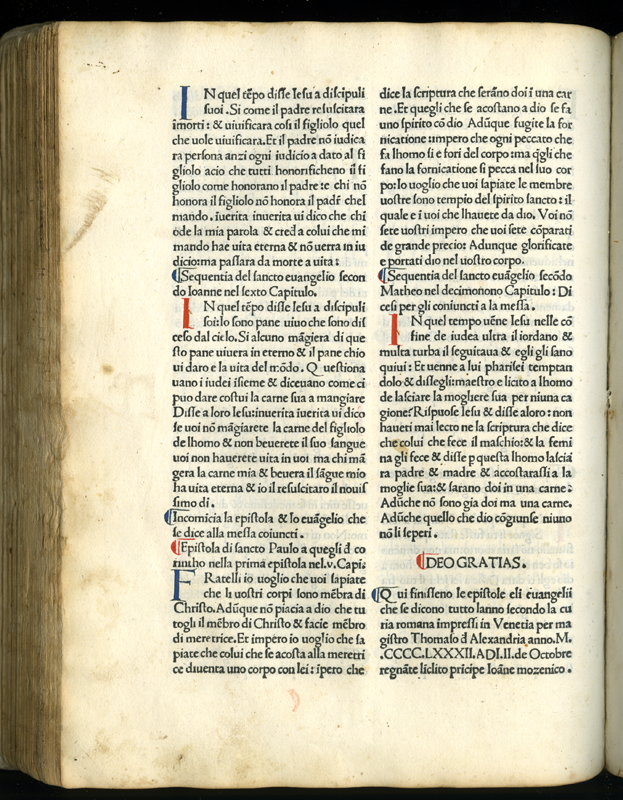 IN quel tẽpo disse Iesu a discipuli
suoi. Si come il padre resuscitara
imorti: & uiuificara cosi il figliolo quel
che uole uiuificara. Et il padre nõ iudica
ra persona anzi ogni iudicio a dato al fi
gliolo acio che tutti honorificheno il fi
gliolo come honorano il padre: e chi nõ
honora il figliolo nõ honora il padr̃ chel
mando. iuerita inuerita ui dico che chi
ode la mia parola & cred̃ a colui che mi
mando hae uita eterna & nõ uerra in iu
dicio: ma passara da morte a uita:
¶Sequentia del sancto euangelio secon
do Ioanne nel sexto Capitulo.
IN quel tẽpo disse Iesu a discipuli
soi: Io sono pane uiuo che sono dis
ceso dal cielo. Si alcuno mãgiera di que
sto pane uiuera in eterno & il pane chio
ui daro e la uita del mõdo. Questiona
uano i iudei ĩsieme & diceuano come ci
puo dare costui la carne sua a mangiare
Disse a loro Iesu: inuerita iuerita ui dico
se uoi nõ mãgiarete la carne del figliolo
de lhomo & non beuerete il suo sangue
uoi non hauerete uita in uoi ma chi mã
gera la carne mia & beuera il sãgue mio
ha uita eterna & io il resuscitaro il nouis
simo di.
¶Incomicia la epistola & lo euãgelio che
se dice alla messa coiuncti.
¶Epistola di sancto Paulo a quegli d̃ co
rintho nella prima epistola nel.v. Capi:
FRatelli io uoglio che uoi sapiate
che li uostri corpi sono mẽbra di
Christo. Adũque nõ piacia a dio che tu
togli il mẽbro di Christo & facie mẽbro
di meretrice. Et impero io uoglio che sa
piate che colui che se acosta alla meretri
ce diuenta uno corpo con lei: ĩpero che
dice la scriptura che serãno doi ĩ una car
ne. Et quegli che se acostano a dio se fa
uno spirito cõ dio Adũque fugite la for
nicatione: impero che ogni peccato che
fa lhomo si e fori del corpo: ma q̃gli che
fano la fornicatione si pecca nel suo cor
po: Io uoglio che uoi sapiate le membre
uostre sono tempio del spirito sancto: il
quale e ĩ uoi che lhauete da dio. Voi nõ
sete uostri impero che uoi sete cõparati
de grande precio: Adunque glorificate
e portati dio nel uostro corpo.
¶Sequentia del sancto euãgelio secõdo
Matheo nel decimonono Capitulo: Di
cesi per gli coniuncti a la messa.
IN quel tempo uẽne Iesu nelle cõ
fine de iudea ultra il iordano &
multa turba il seguitaua & egli gli sano
quiui: Et uenne a lui pharisei temptan
dolo & dissegli: maestro e licito a lhomo
de lasciare la mogliere sua per niuna ca
gione? Rispuose Iesu & disse aloro: non
haueti mai lecto ne la scriptura che dice
che colui che fece il maschio: & la femi
na gli fece & disse p questa lhomo lascia
ra padre & madre & accostarassi a la
moglie sua: & sarano doi in una carne:
Adũche nõ sono gia doi ma una carne.
Adũche quello che dio cõgiunse niuno
nõ li seperi.
¶DEO GRATIAS.
¶Qui finisseno le epistole eli euangelii
che se dicono tutto lanno secondo la cu
ria romana impressi in Venetia per ma
gistro Thomaso d̃ Alexandria anno.M.
.CCCC.LXXXII.ADI.II. de Octobre
regnãte liclito pricipe Ioãne mozenico.